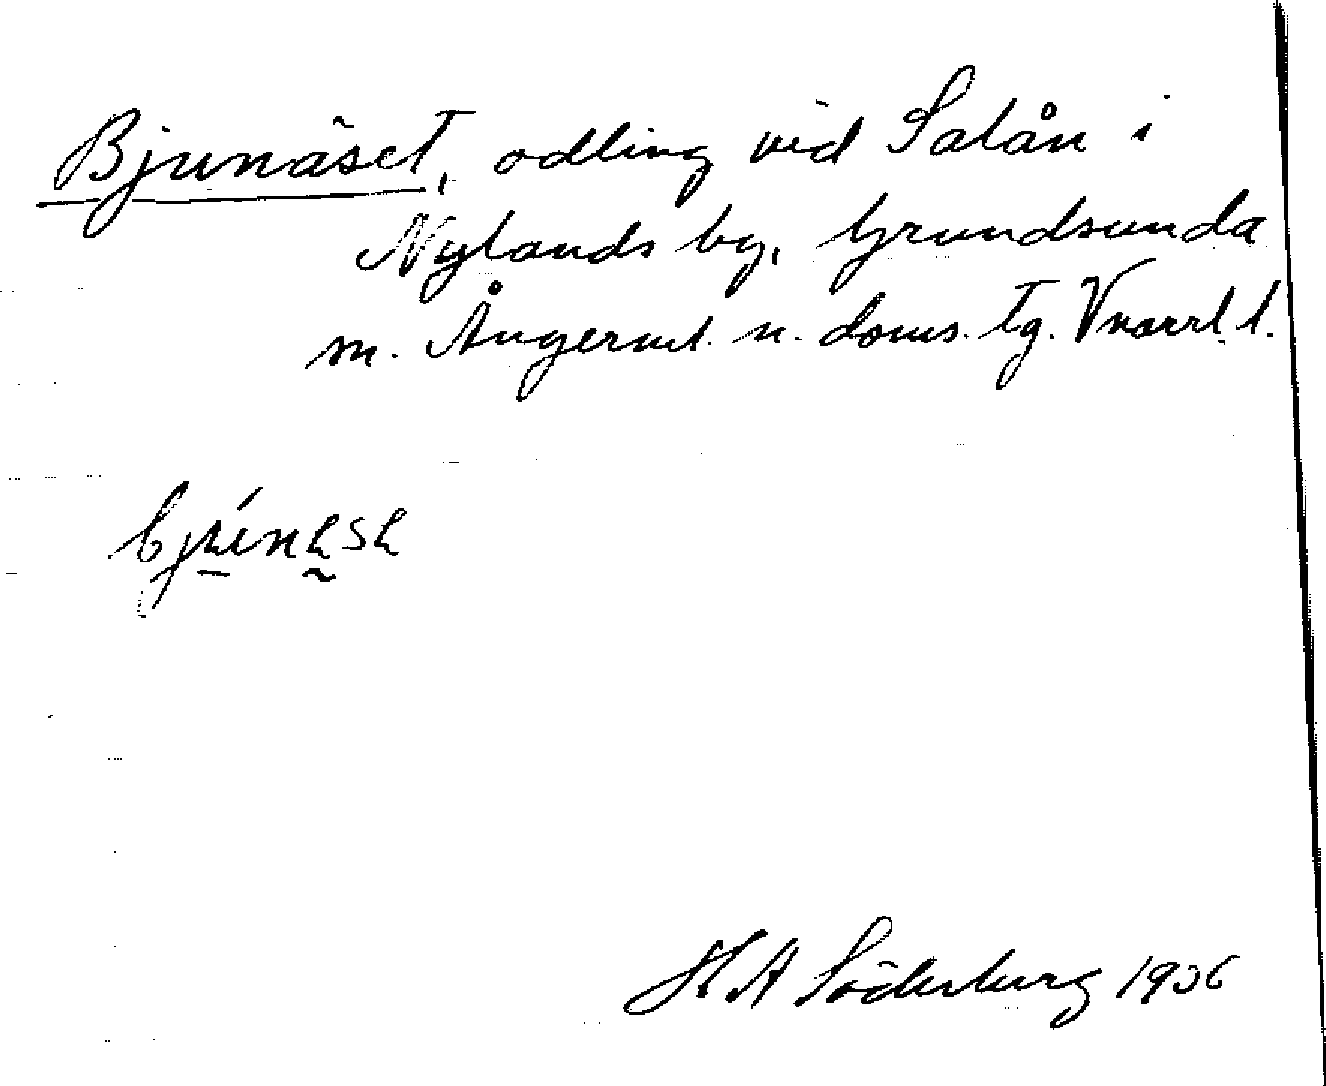 Bjunäset, odling vid Salån i
Nylands by, Grundsunda
m. Ångerml. n. doms. tg. Vnorrl. l.
H A Söderberg 1936